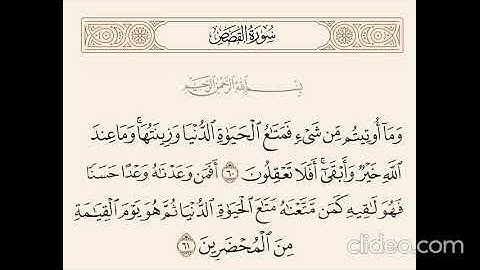 سُورَةُ القَصَصِ
بِسْمِ اللَّهِ الرَّحْمَٰنِ الرَّحِيمِ
وَمَا أُوتِيتُم مِّن شَيْءٍ فَمَتَٰعُ الْحَيَوٰةِ الدُّنْيَا وَزِينَتُهَا ۚ وَمَا عِندَ
اللَّهِ خَيْرٌ وَأَبْقَىٰٓ ۚ أَفَلَا تَعْقِلُونَ ٦٠ أَفَمَن وَعَدْنَٰهُ وَعْدًا حَسَنًا
فَهُوَ لَٰقِيهِ كَمَن مَّتَّعْنَٰهُ مَتَٰعَ الْحَيَوٰةِ الدُّنْيَا ثُمَّ هُوَ يَوْمَ الْقِيَٰمَةِ
مِنَ الْمُحْضَرِينَ ٦١
clideo.com